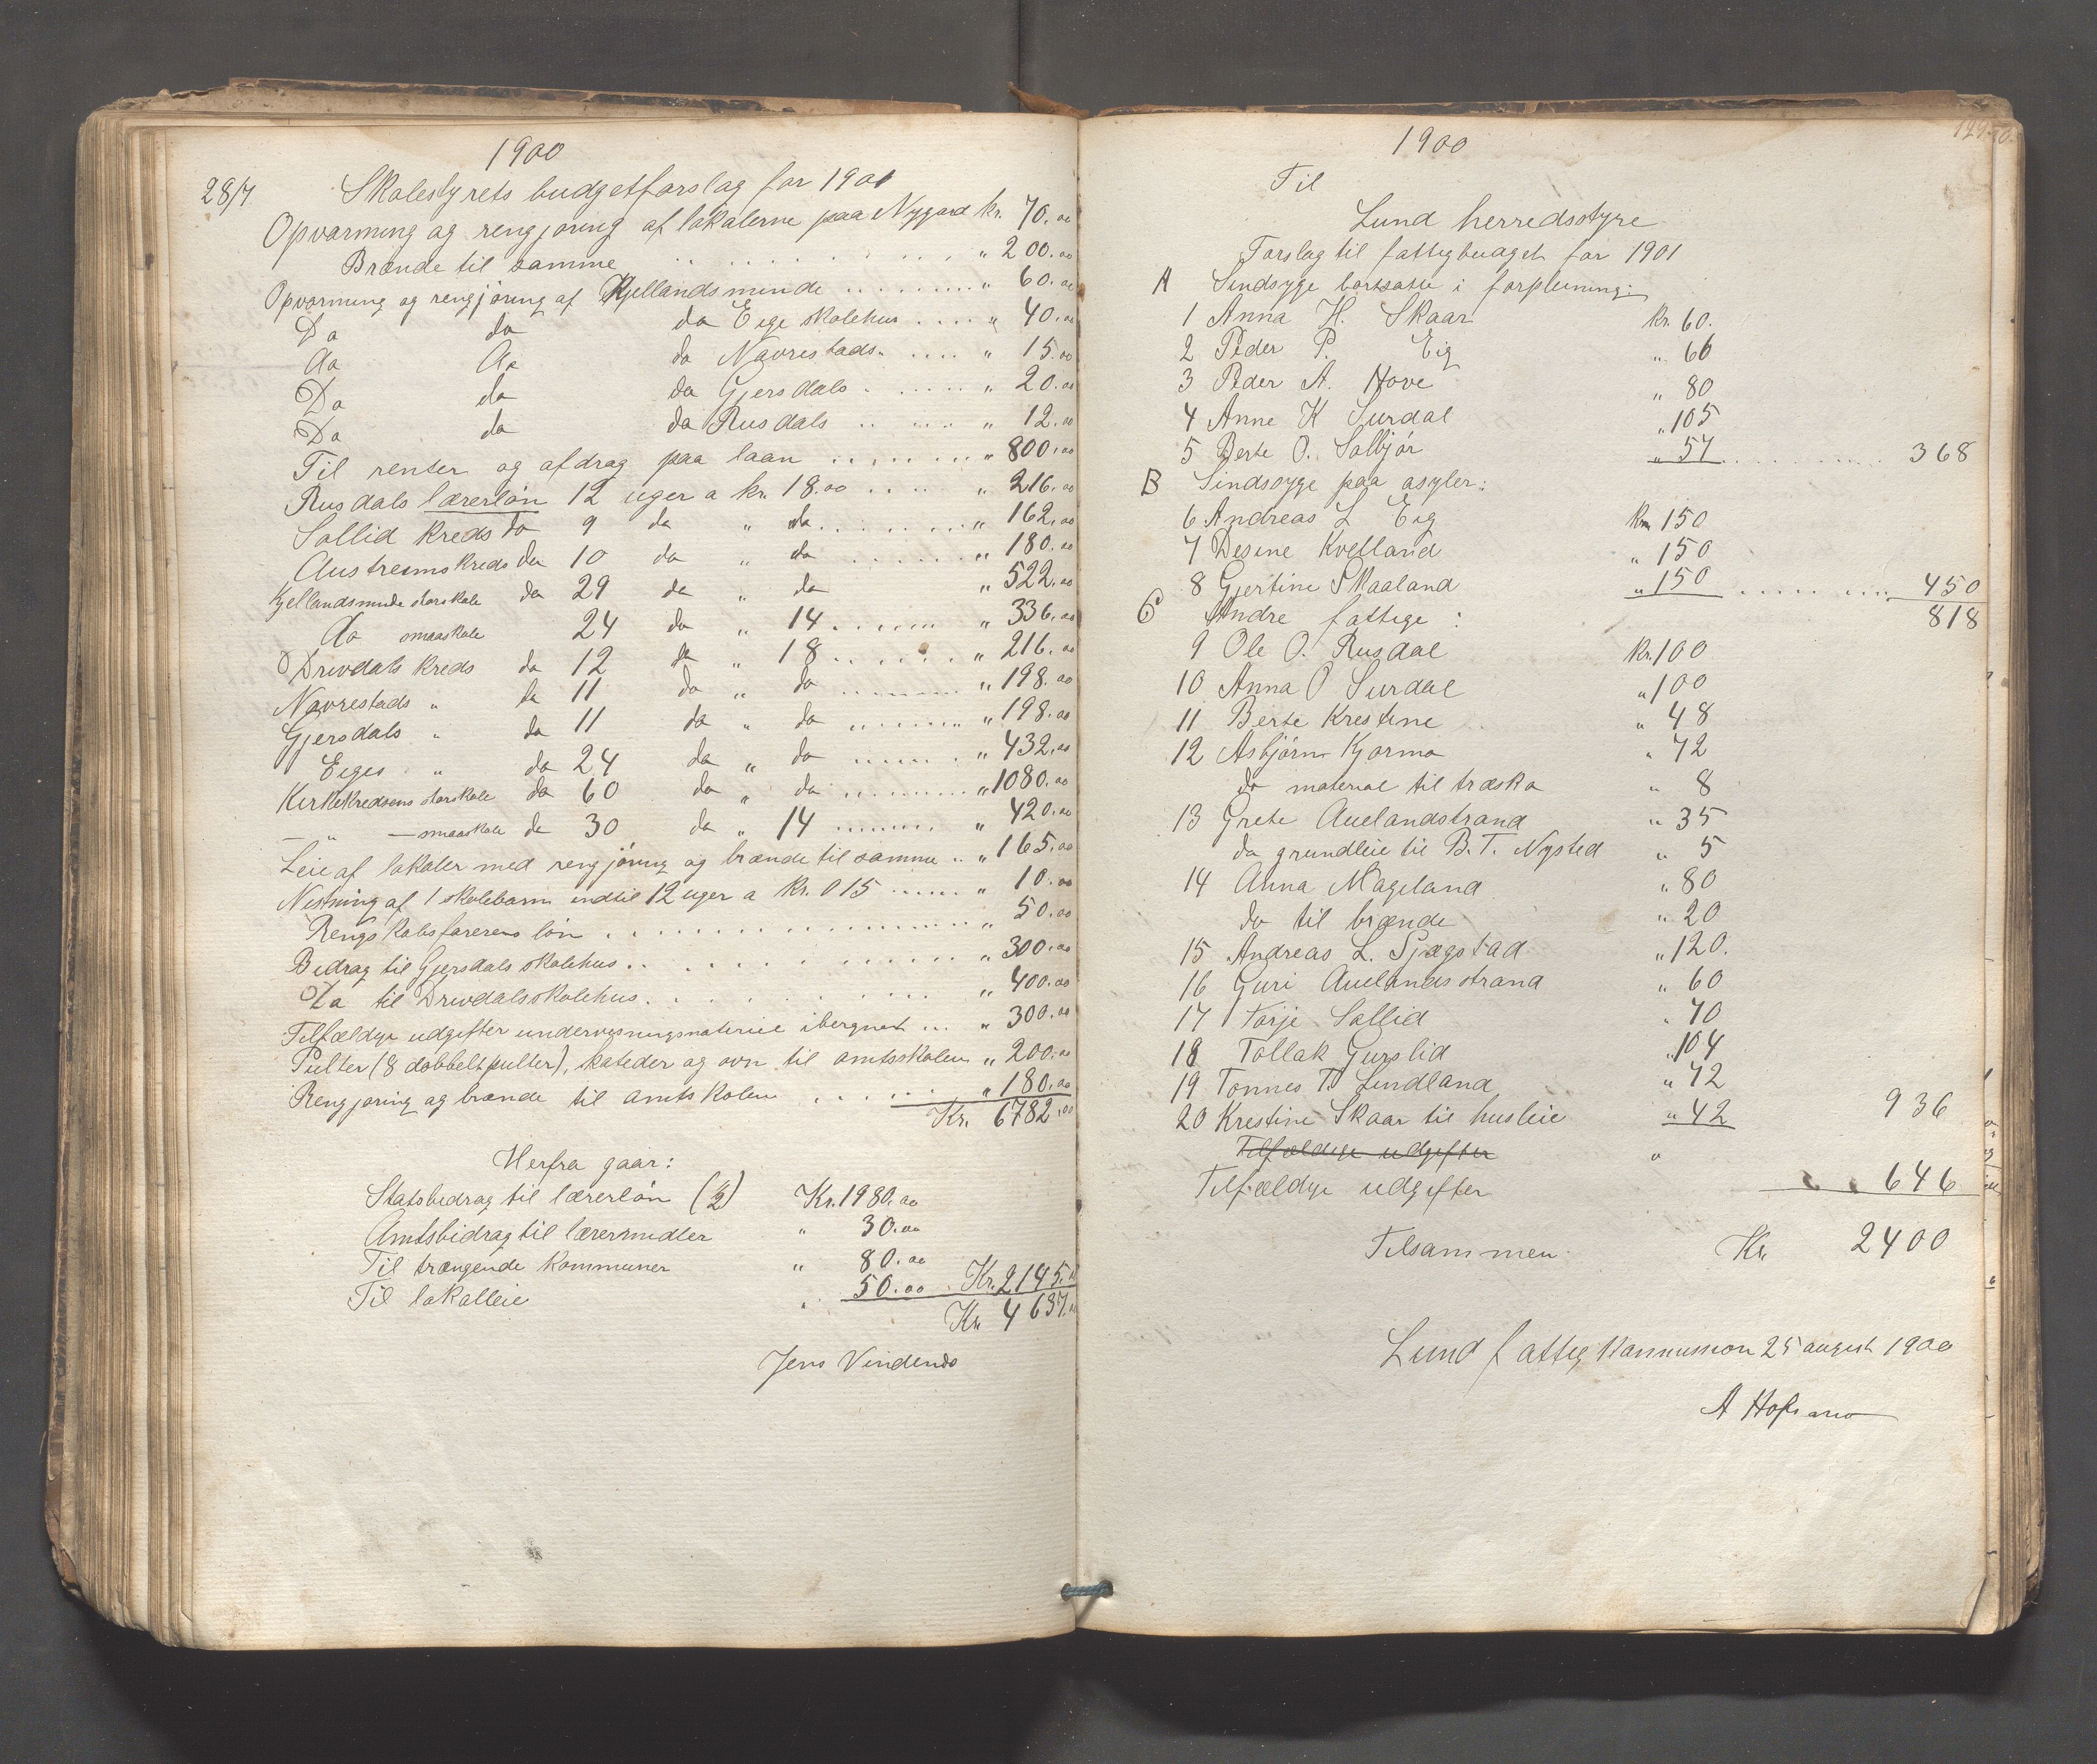 1900
28/7 Skolestyrets budgetforslag for 1901
Opvarming og rengjøring af lokalerne paa Nygaard kr. 70.00
Brænde til samme " 200.00
Opvarming og rengjøring af Kjellandsminde " 60.00
Do do do Eige skolehus " 40.00
Do Do do Navrestads " 15.00
Do do do Gjersdals " 20.00
Do do do Rusdals " 12.00
Til renter og afdrag paa laan " 800.00
Rusdals lærerløn 12 uger a kr. 18.00 " 216.00
Sollid kreds do 9 do " do " 162.00
Austreims kreds do 10 do " do " 180.00
Kjellandsminde storskole do 29 do " do " 522.00
Do smaaskole 24 do " 14 " 336.00
Drivdals kreds do 12 do " 18 " 216.00
Navrestads " do 11 do " do " 198.00
Gjersdals " do 11 do " do " 198.00
Eiges " do 24 do " do " 432.00
Kirkekredsens storskole do 60 do " do " 1080.00
— " — smaaskole do 30 do " 14 " 420.00
Leie af lokaler med rengjøring og brænde til samme " 165.00
Nistning af 1 skolebarn indtil 12 uger a kr. 0 15 " 10.00
Rengskabsførerens løn " 50.00
Bidrag til Gjersdals skolehus " 300.00
Do til Drivdalsskolehus " 400.00
Tilfældige udgifter undervisningsmateriel iberegnet " 300.00
Pulter (8 dobbeltpulter), kateder og ovn til amtsskolen " 200.00
Rengjøring og brænde til amtskolen " 180.00
Kr. 6782.00
Herfra gaar:
Statsbidrag til lærerløn (1/2) Kr. 1980.00
Amtsbidrag til læremidler " 30.00
Til trængende kommuner " 80.00
Til lokalleie " 50.00 Kr. 2145.00
Kr. 4637.00
Jens Vindenes
1900
Til
Lund herredsstyre
Forslag til fattigbudget for 1901
A Sindsyge bortsatte i forpleining:
1 Anna H. Skaar kr. 60.
2 Peder P. Eig " 66
3 Peder A. Hove " 80
4 Anne K Surdal " 105
5 Berte O. Solbjør " 57 368
B Sindssyge paa asyler:
6 Andreas L Eig Kr 150
7 Desine Kvelland " 150
8 Gjertine Skaaland " 150 450
C Andre fattige : 818
9 Ole O. Rusdal Kr. 100
10 Anna O Surdal " 100
11 Berte Krestine " 48
12 Asbjørn Kjørmo " 72
do material til træsko " 8
13 Grete Auelandstrand " 35
do grundleie til B. T. Nysted " 5
14 Anna Mageland " 80
do til brænde " 20
15 Andreas L. Sjægstad " 120.
16 Guri Auelandsstrand " 60
17 Torje Sollid " 70
18 Tollak Gurslid " 104
19 Tønnes T. Lindland " 72
20 Krestine Skaar til husleie " 42 936
Tilfældige udgifter "
Tilfældige udgifter 646
Tilsammen Kr. 2400
Lund fattigkommission 25 august 1900